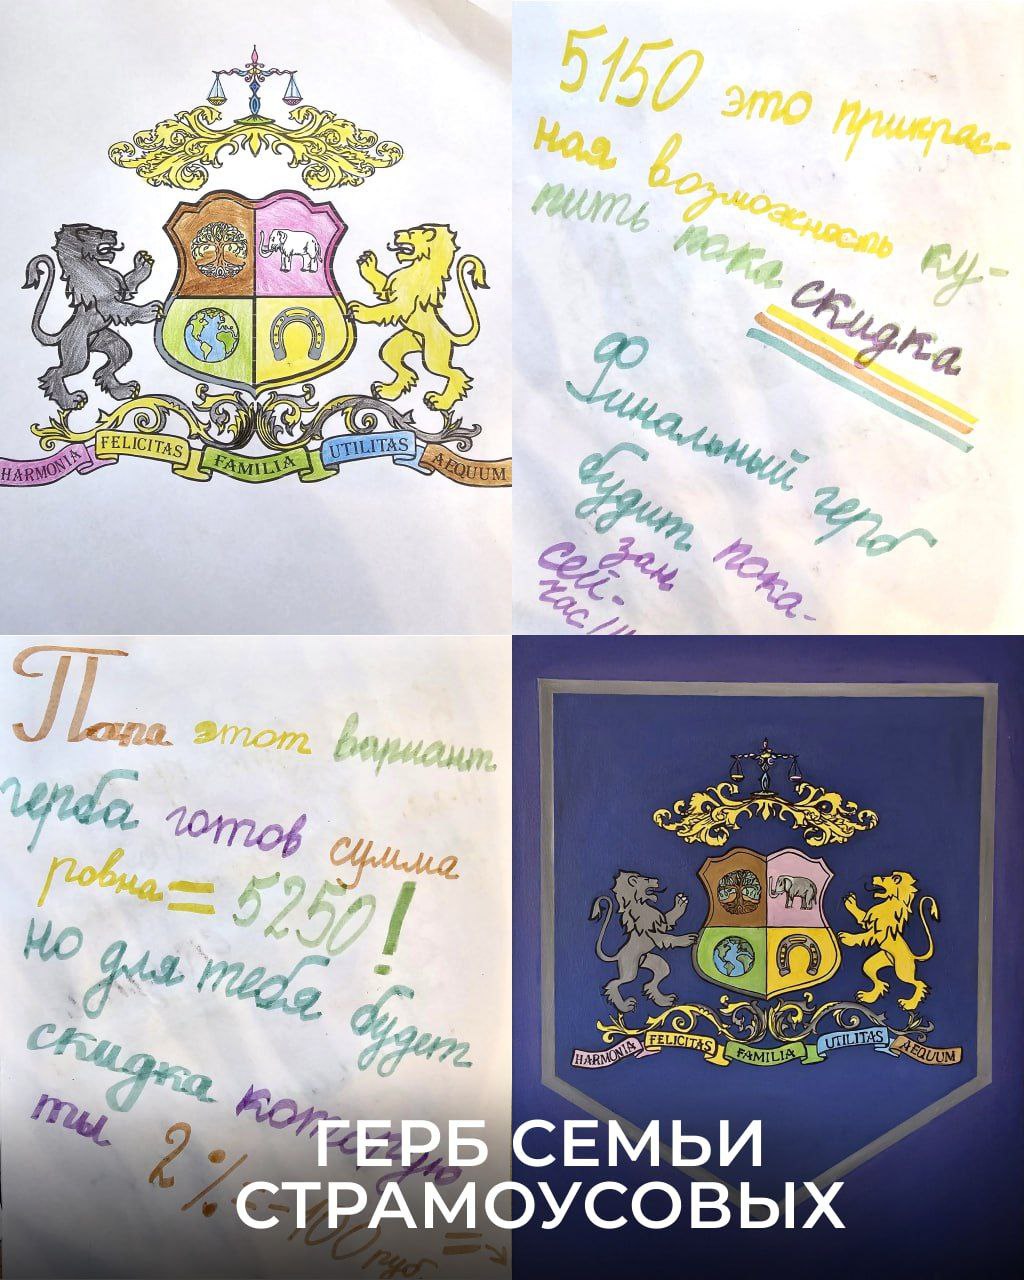 HARMONIA
FELICITAS
FAMILIA
UTILITAS
AEQUUM
5150 это прикрас-
ная возможность ку-
пить пока скидка
Финальный герб
будит пока-
зан
сей-
час!!!
Папа этот вариант
герба готов сумма
ровна = 5250!
но для тебя будет
скидка которую
ты 2% = -100 руб. =
HARMONIA
FELICITAS
FAMILIA
UTILITAS
AEQUUM
ГЕРБ СЕМЬИ
СТРАМОУСОВЫХ